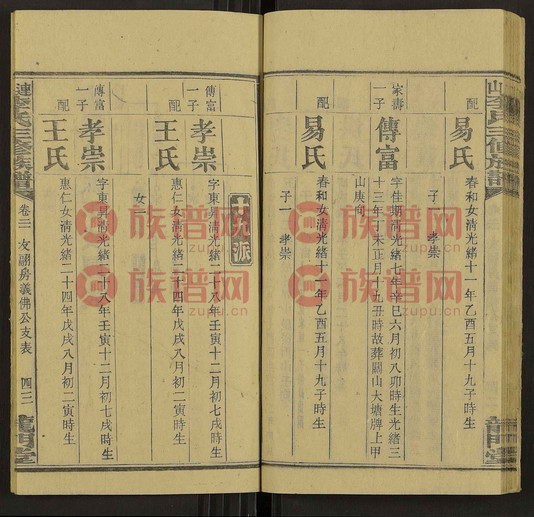 配
易氏
春和女清光緒十一年乙酉五月十九子時生
子一 孝崇
家壽
一子
傳富
字佳期清光緒七年辛巳六月初八卯時生光緒三
十三年丁未正月十九丑時故葬關山大塘牌上甲
山庚向
配
易氏
春和女清光緒十一年乙酉五月十九子時生
子一 孝崇
十九派
傳富
一子
孝崇
字東興清光緒二十八年壬寅十二月初七戌時生
配
王氏
惠仁女清光緒二十四年戊戌八月初二寅時生
女二
傳富
一子
孝崇
字東興清光緒二十八年壬寅十二月初七戌時生
配
王氏
惠仁女清光緒二十四年戊戌八月初二寅時生
漣
李氏三修族譜
卷三 友翮房義佛公支表 四三
龍門堂
族谱网
zupu.cn
族谱网
zupu.cn
族谱网
zupu.cn
族谱网
zupu.cn